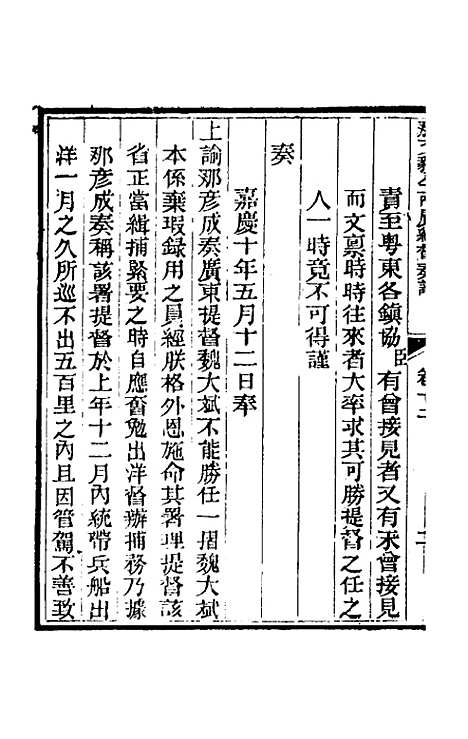 責至粵東各鎮協臣有曾接見者又有未曾接見
而文稟時時往來者大率求其可勝提督之任之
人一時竟不可得謹
奏
嘉慶十年五月十二日奉
上諭那彥成奏廣東提督魏大斌不能勝任一摺魏大斌
本係棄瑕録用之員經朕格外恩施命其署理提督該
省正當緝捕緊要之時自應奮勉出洋督辦捕務乃據
那彥成奏稱該署提督於上年十二月內統帶兵船出
洋一月之久所巡不出五百里之內且因管駕不善致